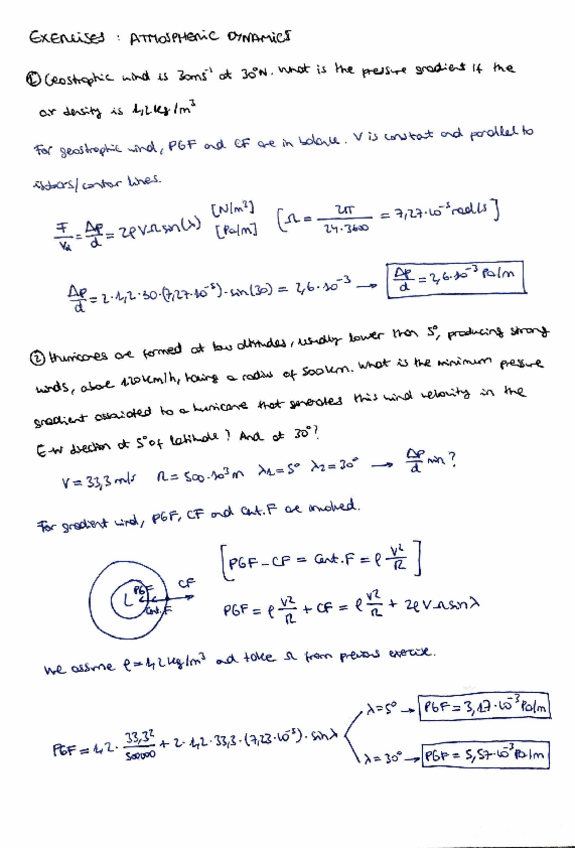 EXERCISES : ATMOSPHERIC DYNAMICS
① Geostrophic wind is 30ms⁻¹ at 30°N. What is the pressure gradient if the
air density is 1,2 kg/m³
For geostrophic wind, PGF and CF are in balance. V is constant and parallel to
isobars/contour lines.
F/Vₐ = Δp/d = 2ρVΩsin(λ) [N/m³] [Pa/m] [Ω = 2π/24·3600 = 7,27·10⁻⁵ rad/s]
Δp/d = 2·1,2·30·(7,27·10⁻⁵)·sin(30) = 2,6·10⁻³ → Δp/d = 2,6·10⁻³ Pa/m
② Hurricanes are formed at low altitudes, usually lower than 5°, producing strong
winds, above 120km/h, having a radius of 500km. What is the minimum pressure
gradient associated to a hurricane that generates this wind velocity in the
E-W direction at 5° of latitude? And at 30°?
V = 33,3 m/s R = 500·10³ m λ₁ = 5° λ₂ = 30° → Δp/d min?
For gradient wind, PGF, CF and Cent.F are involved.
[PGF - CF = Cent.F = ρ V²/R]
L PGF CF Cent.F
PGF = ρ V²/R + CF = ρ V²/R + 2ρVΩsinλ
We assume ρ = 1,2 kg/m³ and take Ω from previous exercise.
PGF = 1,2 · 33,3²/500000 + 2·1,2·33,3·(7,23·10⁻⁵)·sinλ
λ = 5° → PGF = 3,17·10⁻³ Pa/m
λ = 30° → PGF = 5,57·10⁻³ Pa/m